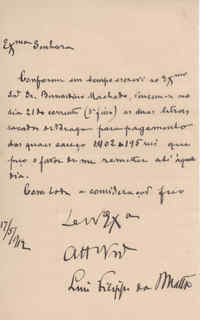 Exma Senhora
Conforme em tempo escrevi ao Exmo
Sr. Dr. Bernardino Machado, vencem-se no
dia 21 do corrente (3ª feira) as duas letras
sacadas de Braga para pagamento
das quaes careço 1902$195 rei que
peço o favor de me remetter até áquele
dia.
Com toda a consideração fico
De V Exa
Attº Vor
Luis Filippe da Matta
17/5/912